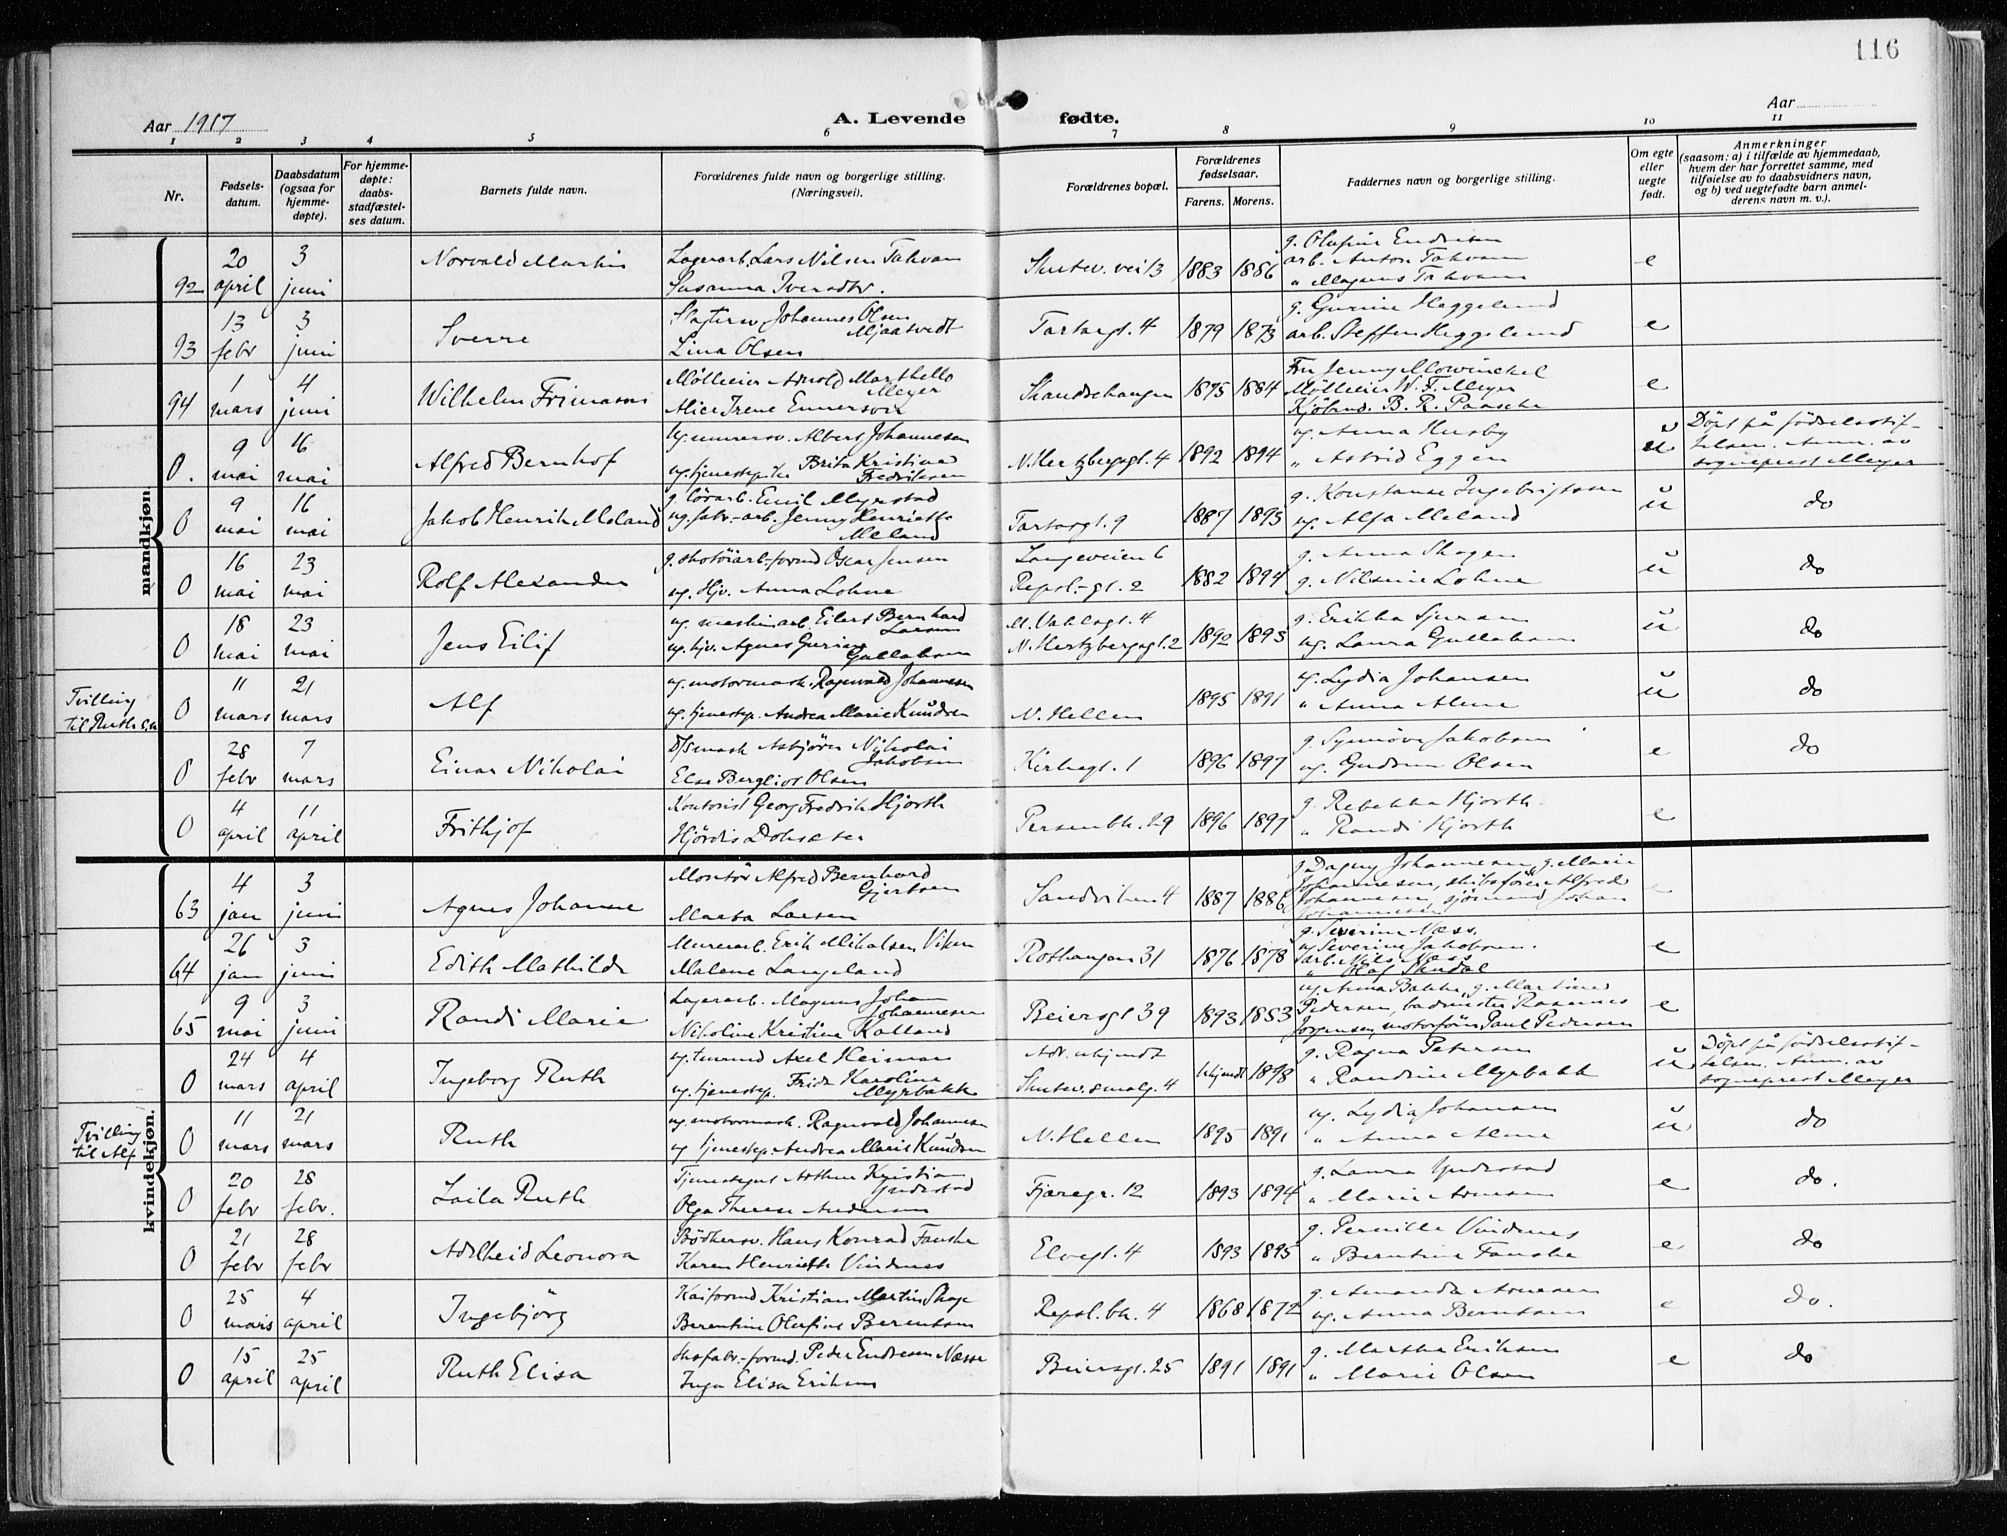 116
Aar 1917
A. Levende fødte.
Aar
1 2 3 4 5 6 7 8 9 10 11
Nr.
Fødsels-
datum.
Daabsdatum
(ogsaa for
hjemme-
døpte).
For hjemme-
døpte:
daabs-
stadfæstel-
ses datum.
Barnets fulde navn.
Forældrenes fulde navn og borgerlige stilling.
(Næringsvei).
Forældrenes bopæl.
Forældrenes
fødselsaar.
Farens. Morens.
Faddernes navn og borgerlige stilling.
Om egte
eller
uegte
født.
Anmerkninger
(saasom: a) i tilfælde av hjemmedaab,
hvem der har forrettet samme, med
tilføielse av to daabsvidners navn,
og b) ved uegtefødte barn anmel-
derens navn m. v.).
mandkjøn.
92
20
april
3
juni
Norvald Martin
Lagerarb. Lars Nilsen Takvam
Susanna Iversdtr.
Skutev. vei 13
1883 1886
g. Olufine Endresen
arb. Anton Takvam
" Magnus Takvam
e
93
13
febr
3
juni
Sverre
Johannes Olsen
Mjaatvedt
Lina Olsen
Tartargt. 4
1879 1873
g. Gurine Heggelund
arb. Steffen Heggelund
e
94
1
mars
4
juni
Wilhelm Frimann
Mölleier Arnold
Meyer
Alice Irene
Skandsehaugen
1875 1884
Fru Jenny Mowinckel
Mölleier W. F. Meyer
Kjöbmd. B. R. Paasche
e
0.
9
mai
16
mai
Alfred Bernhof
ug. murersv. Albert Johannesen
ug. tjenestep. Brita Kristine
Fredriksen
N. Hertzbergsgt. 4
1892 1894
ug. Anna Husby
" Astrid Eggen
u
Döpt på födselsstif-
telsen. Anm. av
sogneprest Meyer
0
9
mai
16
mai
Jakob Henrik Meland
g. Emil Myrstad
ug. fabr.-arb. Jenny Henriette
Meland
Tartargt. 9
1887 1895
g. Konstanse Ingebrigtsen
ug. Alfa Meland
u
do
0
16
mai
23
mai
Rolf Alexander
g. skotöiarb.-formd Oscar Jensen
ug. Hjv. Anna Lohne
Langeveien 6
Repsl.-gt. 2
1882 1894
g. Anna Skogen
g. Nilsine Lohne
u
do
0
18
mai
23
mai
Jens Eilif
ug. maskinarb. Eilert Bernhard
Larsen
ug. hjv. Agnes Gurine
Gullaksen
M. Vahlsgt. 4
N. Hertzbergsgt. 2
1892 1895
g. Erikka Sjursen
ug. Laura Gullaksen
u
do
Tvilling
til Ruth
0
11
mars
21
mars
Alf
ug. motormask. Ragnvald Johannesen
ug. tjenestep. Andrea Marie Knudsen
N. Hellen
1895 1891
ug. Lydia Johansen
" Anna Alme
u
do
0
28
febr
7
mars
Einar Nikolai
D/Smask Asbjörn Nikolai
Jakobsen
Else Bergliot Olsen
Kirkegt. 1
1896 1897
g. Synnöve Jakobsen
ug. Gudrun Olsen
e
do
0
4
april
11
april
Frithjof
Kontorist Georg Fredrik Hjorth
Hjördis
Persenbk. 29
1896 1897
g. Rebekka Hjorth
" Randi Hjorth
e
kvindekjøn.
63
4
jan
3
juni
Agnes Johanne
Montör Alfred Bernhard
Gjertsen
Marta Larsen
Sandviken 4
1887 1886
g. Dagny Johannesen, g. Marie
Johannesen, skibsförer Alfred
Johannesen, sjömand Johan
Johannesen
e
64
26
jan
3
juni
Edith Mathilde
Murerarb. Erik Mikalsen Viken
Malene Langeland
Rothaugen 31
1876 1878
g. Severine Næss.
ug. Severine Jakobsen.
arb. Nils Næss
" Olaf Skudal
e
65
9
mai
3
juni
Randi Marie
Lagerarb. Magnus Johan
Johannesen
Nikoline Kristine Kalland
Beiersgt 39
1893 1883
ug. Anna Bakke, g. Martine
Pedersen, badmester Rasmus
Jörgensen, motorförer Paul Pedersen
e
0
24
mars
4
april
Ingeborg Ruth
ug. Axel Heiman
ug. tjenestep. Frida Karoline
Myrbakk
Adr. ukjendt
Skutev. smalg. 4
Ukjendt 1898
g. Ragna Petersen
" Randine Myrbakk
u
Döpt på födselsstif-
telsen. Anm. av
sogneprest Meyer
Tvilling
til Alf
0
11
mars
21
mars
Ruth
ug. motormask. Ragnvald Johannesen
ug. tjenestep. Andrea Marie Knudsen
N. Hellen
1895 1891
ug. Lydia Johansen
" Anna Alme
u
do
0
20
febr
28
febr.
Laila Ruth
Arthur Kristian
Gyderstad
Olga Therese Andersen
Fjæregr. 12
1893 1894
g. Laura Gyderstad
" Marie Arnesen
e
do.
0
21
febr
28
febr
Adelheid Leonora
Bödkersv. Hans Konrad Fanske
Karen Henriette Vindnes
Elvegt. 4
1893 1895
g. Pernille Vindnes
" Berntine Fanske
e
do
0
25
mars
4
april
Ingebjörg
Kaiformd Kristian Martin Skage
Berentine Olufine Berentsen
Repsl. bk. 4
1868 1872
g. Amanda Arnesen
ug. Anna Berntsen
e
do.
0
15
april
25
april
Ruth Elisa
Skofabr.-formd. Peder Endresen Næsse
Inga Elisa Eriksen
Beiersgt. 25
1891 1891
g. Martha Eriksen
" Marie Olsen
e
do